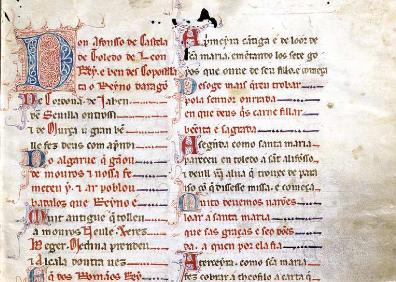 Don Affonso de Castela
de Toledo de Leon
Rey. e ben des Conpostela
ta o Reyno daragõ
De Cordoua de Jahen
de Seuilla outrossi
e de Murça u gran bẽ
lle fez deus com aprendi
Do algarue q̃ gãou
de mouros e nossa fe
meteu y. e ar poblou
badallos que Reyno e
Muit antigue q̃ tolleu
a mouros Neule. Xeres
Beger. Medina prendeu
e Alcala doutra uez
E q̃ dos Romãos Rey
A primeyra cãtiga e de loor de
sc̃a maria, emẽtando los sete go
yos que ouue de seu fillo. e começa
Des oge mais q̃er trobar
pola sennor onrrada
en que deus q̃s carne fillar
bẽeita e sagrada
A segũda como santa maria
pareceu en toledo a sant alifonsso
e deull ũa alua q̃ trouxe de para
iso cõ q̃ dissesse missa. e comẽça
Muito deuemos uarões
loar a santa maria
que sas graças e seo dões
da. a quen por ela fia
A terceyra. como sc̃a maria
fez cobrar a theofilo a carta q̃